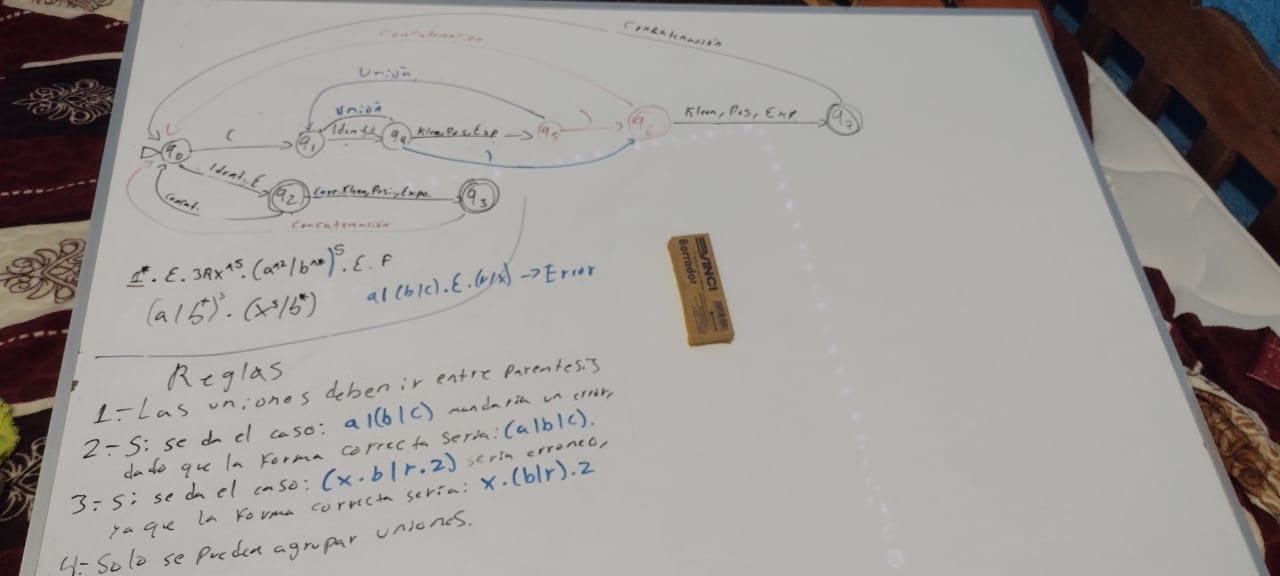 Concatenación
Concatenación
Unión
Unión
(
Identi
Kleen, Pos, Exp
)
)
Kleen, Pos, Exp
q0
q1
q4
q5
q6
q7
Ident, ε
q2
Kleen, Posi, Expo.
q3
Concat.
Concatenación
1*. ε. 3Rx^15. (a^12/b^**)^5. ε. P
(a/b+)^3. (x^5/b*)
a|(b|c).ε.(r/x) → Error
VINCI
Borrador
Reglas
1.-Las uniones deben ir entre parentesis
2-Si se da el caso: a|(b|c) mandaria un error,
dado que la forma correcta seria: (a|b|c).
3-Si se da el caso: (x.b|r.2) seria erroneo,
ya que la forma correcta seria: x.(b|r).2
4-Solo se pueden agrupar uniones.